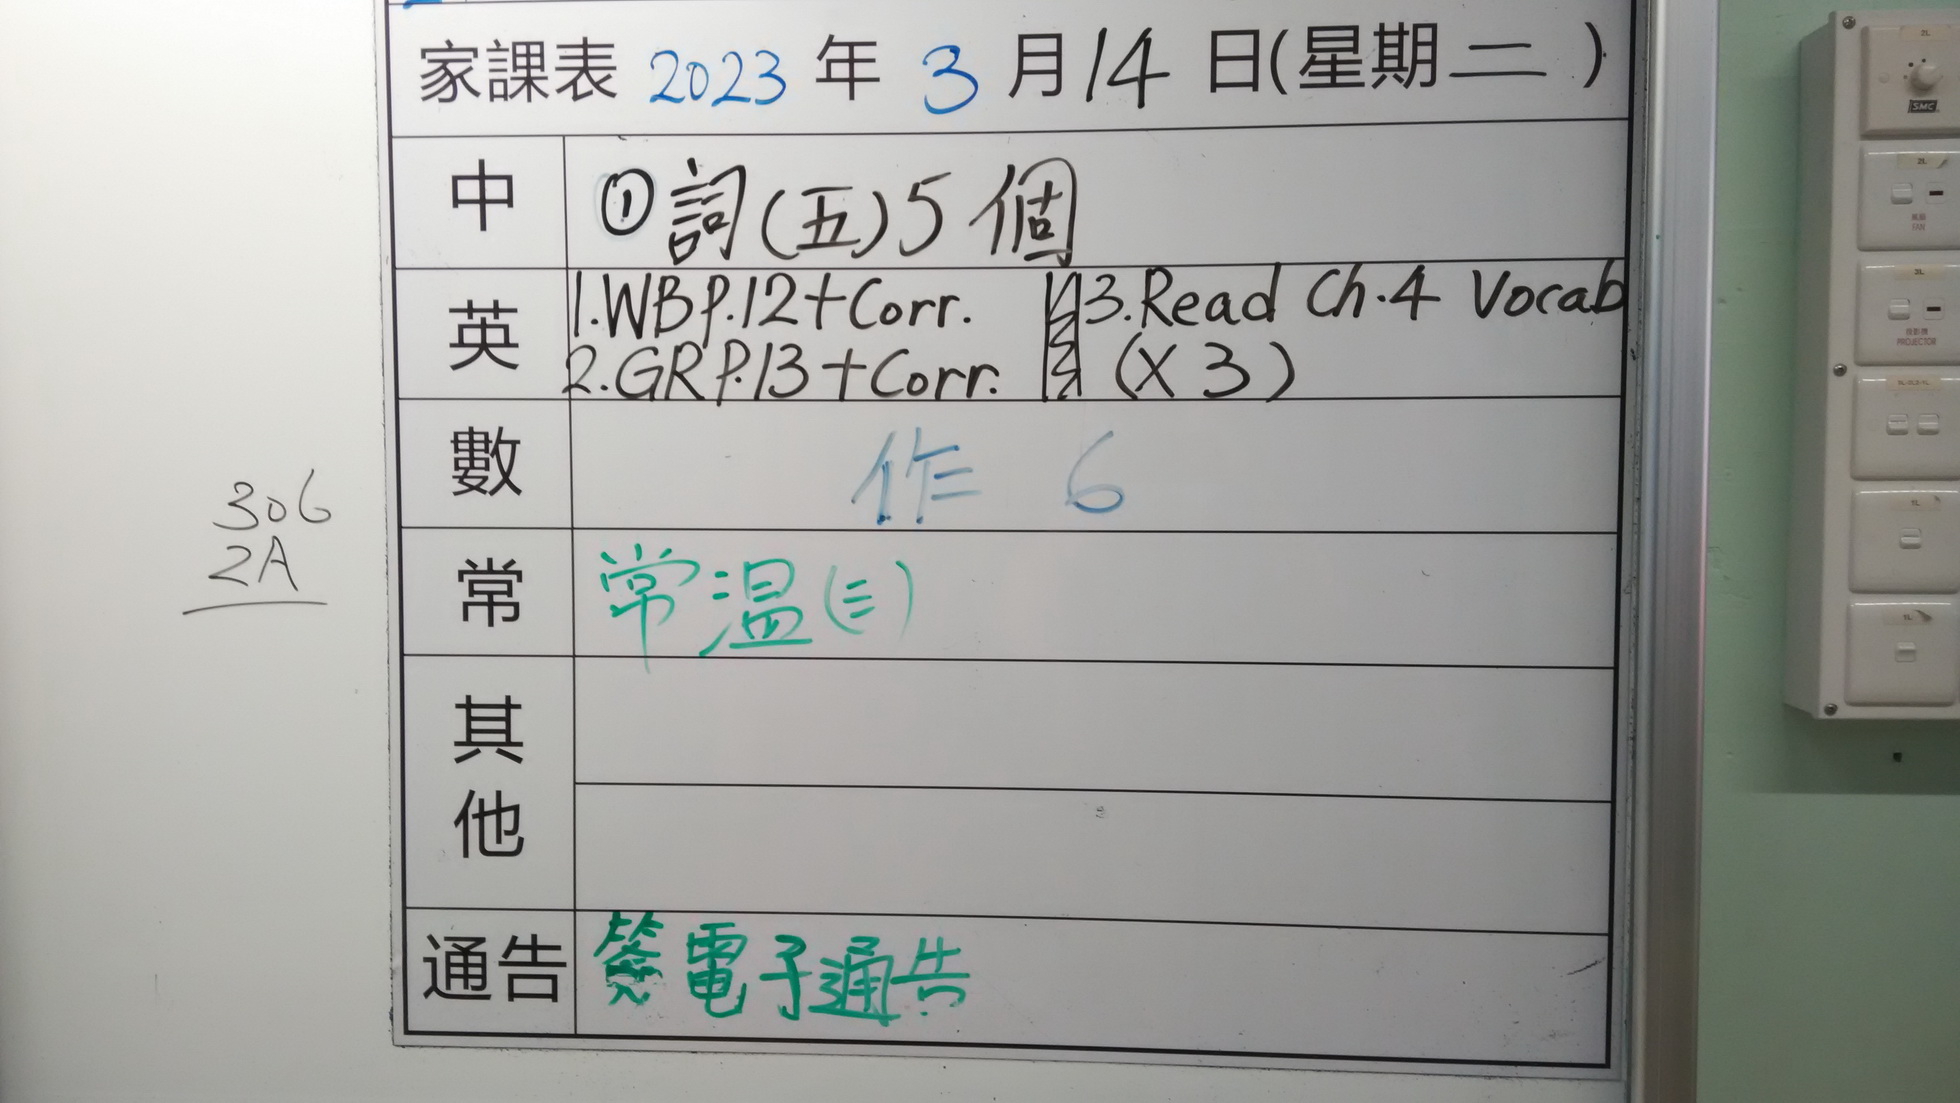 家課表 2023 年 3 月 14 日(星期二)
中 ①詞(五)5個
英 1.WB P.12+Corr. 3.Read Ch.4 Vocab
2.GR P.13+Corr. (X3)
數 作 6
常 常温(三)
其他
通告 簽電子通告
306
2A
SMC
2L
風扇
FAN
2L
投影機
PROJECTOR
1L
1L